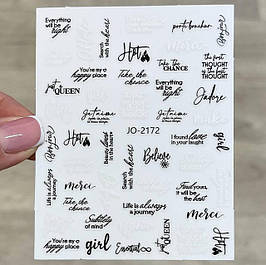 Everything
will be
right
Bonjour
Search
with the heart
Hot
porte bonheur
merci
Take the
CHANCE
THE FIRST
THOUGHT
THE FIRST
THOUGHT
just
QUEEN
You're my
happy place
Take the
chance
J'adore
Je t'aime
Je t'aime
Bonjour
Hot
JO-2172
I found love
in your laught
girl
Beauty
lives
in the
Believe
You're my
happy place
Take the
chance
Search
with the heart
Life is always
a journey
merci
Find yours,
it will be
the last
Subtility
of mind
Life is always
a journey
merci
Everything
will be
right
You're my
happy place
girl
Essential
just
QUEEN
Hot